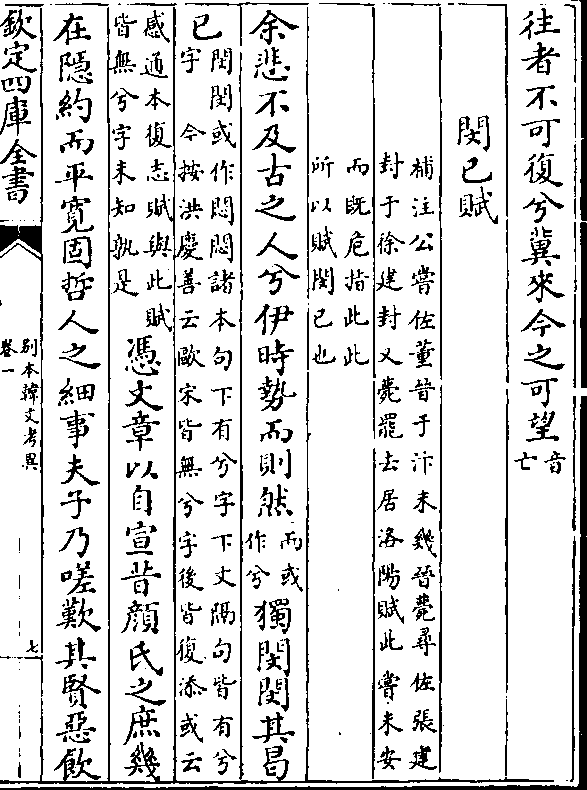 往者不可復兮冀來今之可望音亡
閔已賦
補注公嘗佐董晉于汴未幾晉薨尋佐張建
封于徐建封又薨罷去居洛陽賦此嘗未安
而既危指此此
所以賦閔已也
余悲不及古之人兮伊時勢而則然而或作兮獨閔閔其曷
已閔閔或作悶悶諸本句下有兮字下文隔句皆有兮
字 今按洪慶善云歐宋皆無兮字後皆復添或云
感通本復志賦與此賦
皆無兮字未知孰是憑文章以自宣昔顔氏之庶幾
在隱約而平寬固哲人之細事夫子乃嗟歎其賢惡飲
欽定四庫全書
別本韓文考異
卷一
七